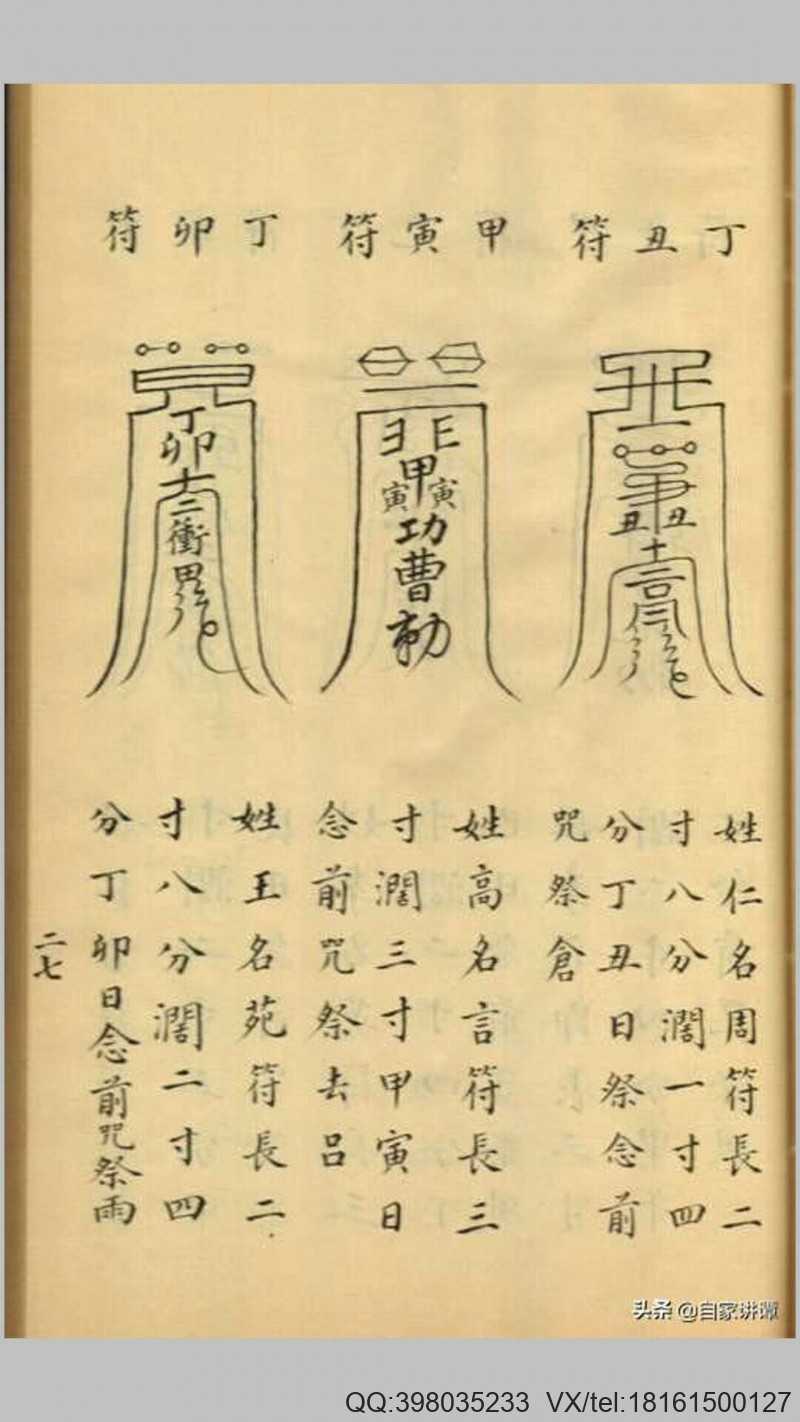 丁丑符
甲寅符
丁卯符
丑丑
甲
寅寅
功曹
丁卯
衝
姓仁名周符長二
寸八分濶一寸四
分丁丑日祭念前
咒祭倉
姓高名言符長三
寸濶三寸甲寅日
念前咒祭去吕
姓王名苑符長二
寸八分濶二寸四
分丁卯日念前咒祭雨
二七
头条 @自家讲壇
QQ:398035233 VX/tel:18161500127